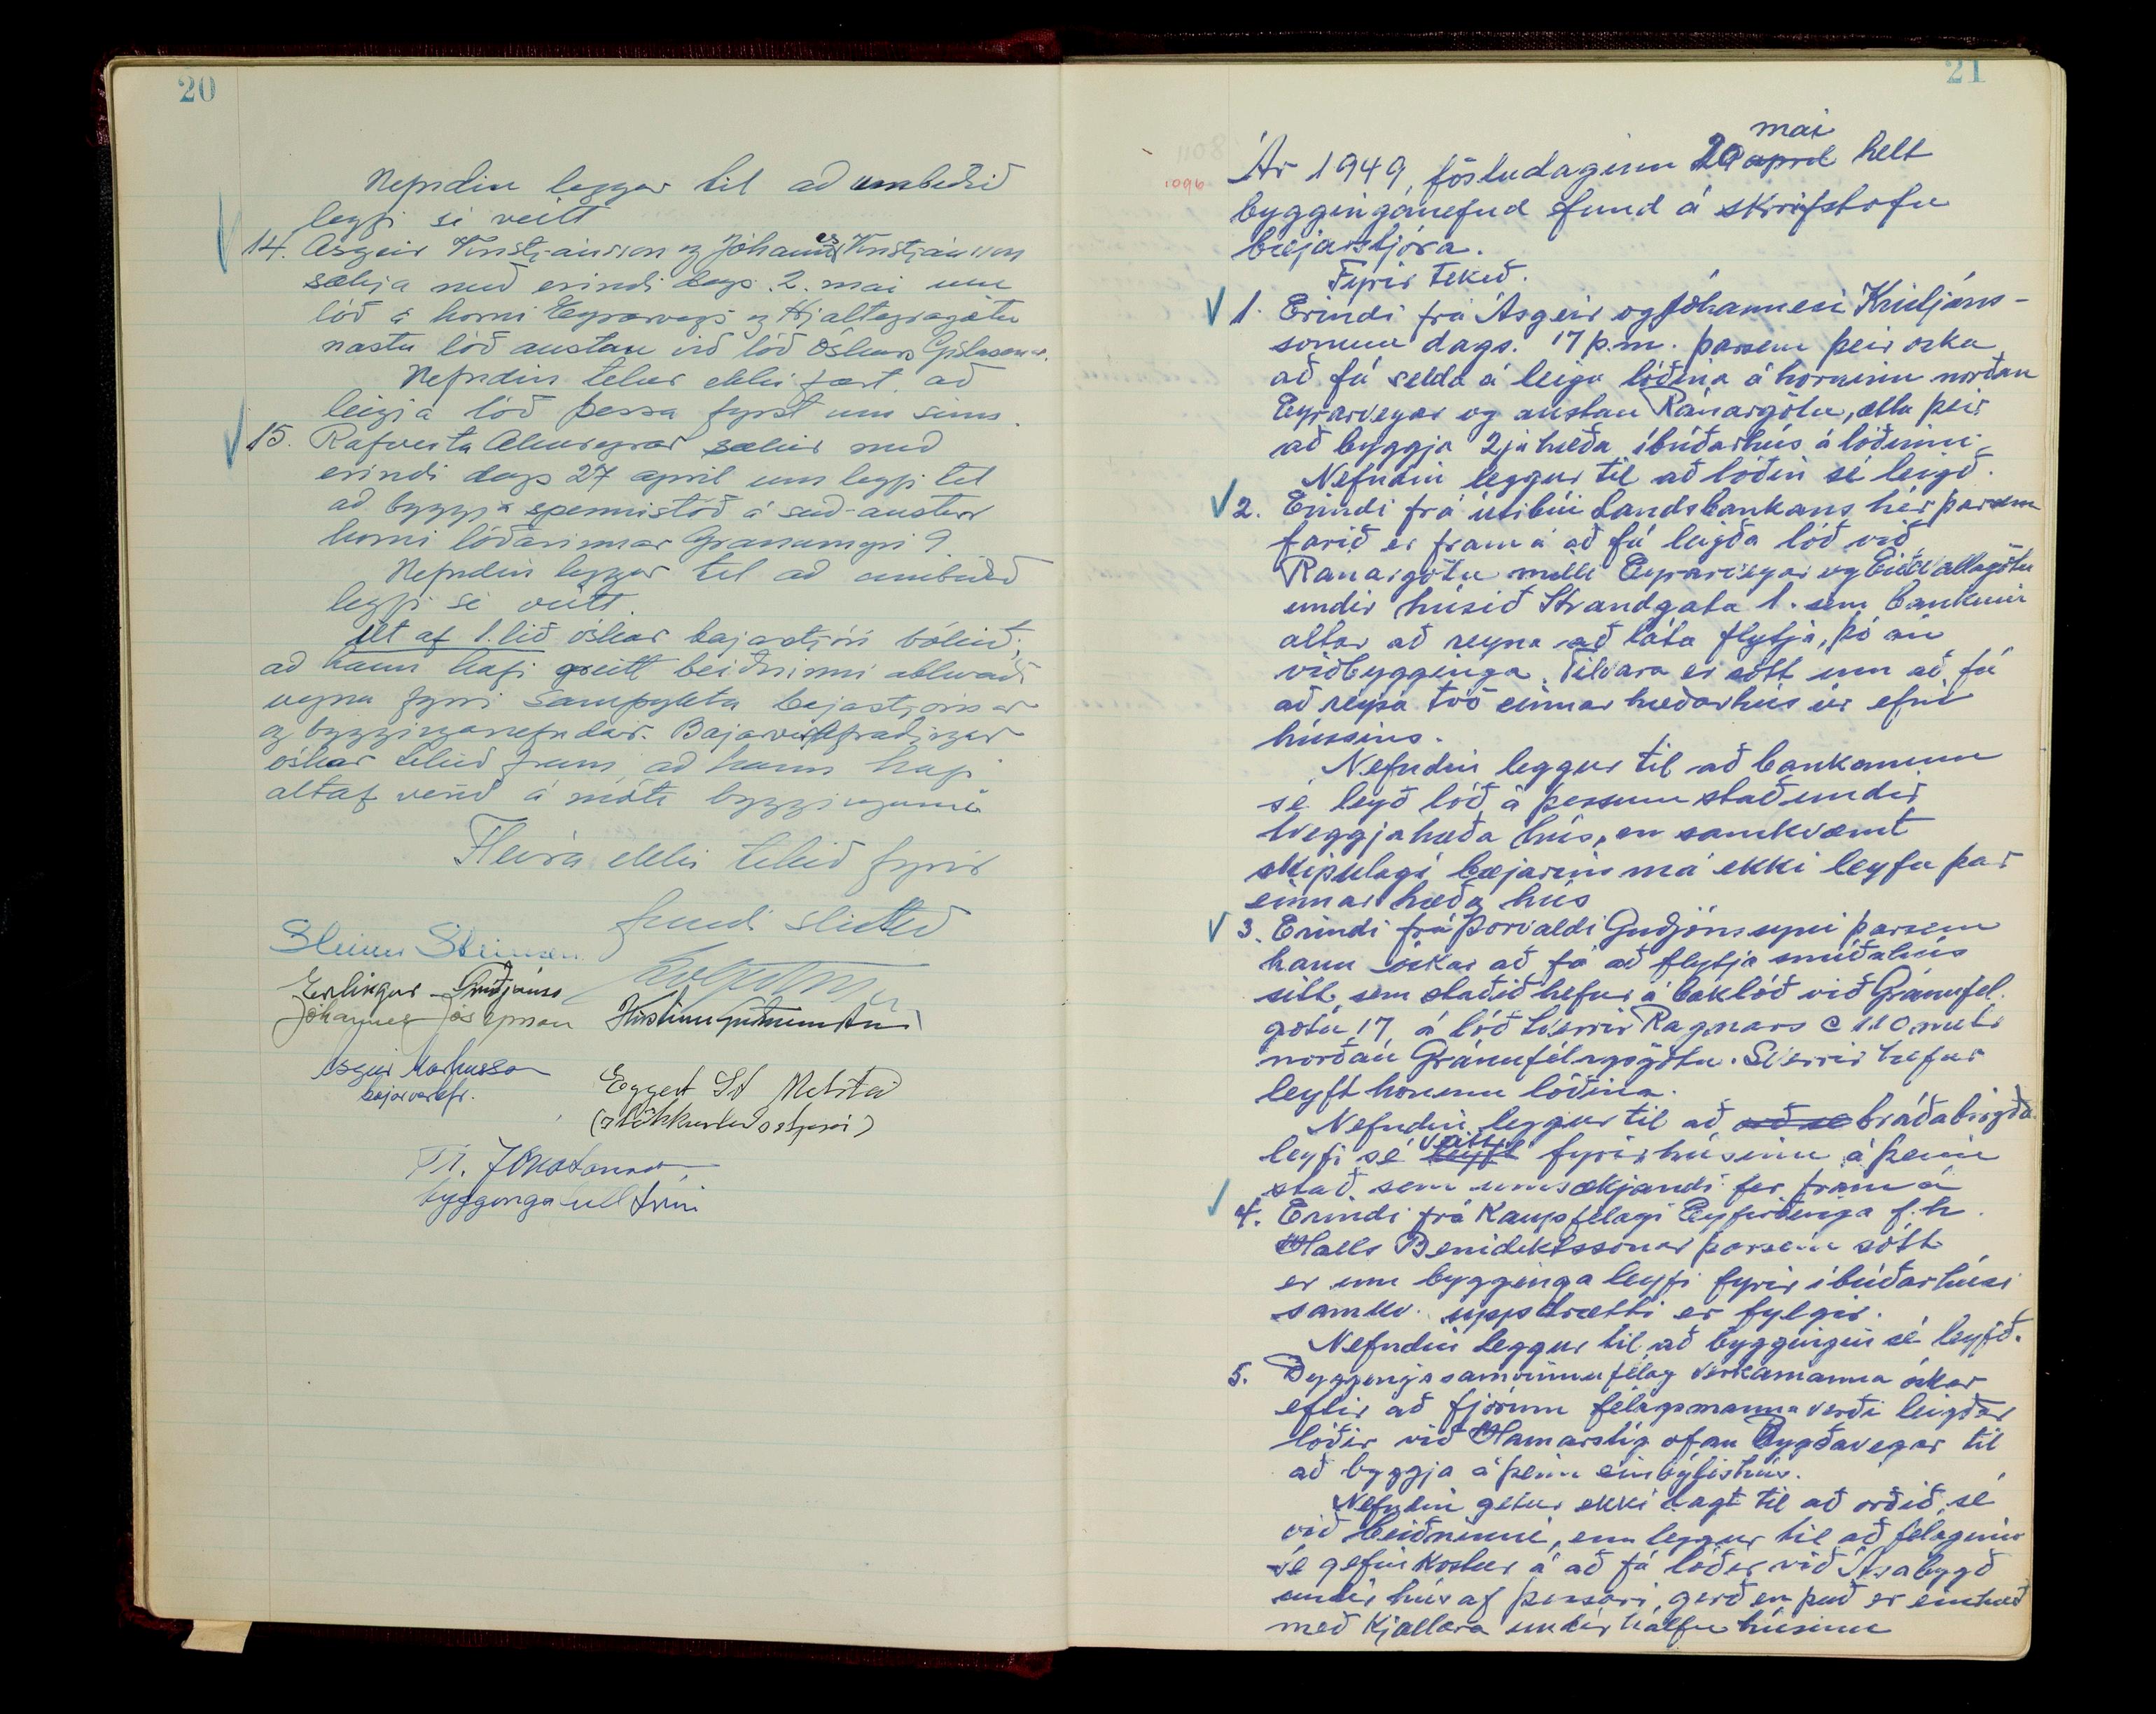 20
Nefndin leggur til að umbeðið
leyfi sé veitt
14. Asgeir Kristjánsson og Jóhannes Kristjánsson
sækja með erindi dags. 2. mai um
lóð á horni Eyrarvegs og Hjalteyragötu
næstu lóð austan við lóð Óskars Gíslasonar.
Nefndin telur ekki fært að
leigja lóð þessa fyrst um sinn.
15. Rafveita Akureyrar sækir með
erindi dags 27 april um leyfi til
að byggja spennistöð á suð-austur
horni lóðarinnar Ránargötu 9
Nefndin leggur til að umbeðið
leyfi sé veitt.
Ut af 1. lið óskar bæjarstjóri bókað;
að hann hafi greitt beiðninni atkvæði
vegna fyrri samþykta bæjarstjórnar
og bygginganefndar. Bæjarverkfræðingur
óskar tekið fram að hann hafi
altaf verið á móti byggingunni
Fleira ekki tekið fyrir
fundi slitið
Steinn Steinsen
Erlingur Friðjónss
Jóhannes Jósepsson
Asgeir Markusson
bæjarverkfr.
Eggert St Melstað
(slökkviliðsstjóri)
byggingafulltrúi
21
1096
mai
Ár 1949, föstudaginn 20 april helt
bygginganefnd fund á skrifstofu
bæjarstjóra.
Fyrir tekið.
1. Erindi frá Ásgeir og Jóhannesi Kristjáns-
sonum dags. 17 þ.m. þarsem þeir oska
að fá selda á leigu lóðina á horninu norðan
Eyrarvegar og austan Ránargötu, ætla þeir
að byggja 2ja hæða íbúðarhús á lóðinni.
Nefndin leggur til að lóðin sé leigð.
2. Erindi frá útibúi Landsbankans hér þarsem
farið er fram á að fá leigða lóð við
Ránargötu milli Eyrarvegar og Eiðsvallagötu
undir húsið Strandgata 1. sem bankinn
ætlar að reyna að láta flytja, þó án
viðbygginga. Tilvara er sótt um að fá
að reysa tvö einnar hæðarhús úr efni
hússins.
Nefndin leggur til að bankanum
sé leigð lóð á þessum stað undir
tveggjahæða hús, en samkvæmt
skipulagi bæjarins má ekki leyfa þar
einnar hæða hús
3. Erindi frá Þorvaldi Guðjónssyni þarsem
hann óskar að fá að flytja smíðahús
sitt sem staðið hefur á baklóð við Gránufél.
götu 17 á lóð Sverrir Ragnars c 110 metr
norðan Gránufélagsgötu. Sverrir hefur
leyft honum lóðina.
Nefndin leggur til að að sé bráðabirgða
leyfi sé leyft veitt fyrir húsinu á þeim
stað sem umsækjandi fer fram á
4. Erindi frá Kaupfélagi Eyfirðinga f.h.
Halls Benidiktssonar þarsem sótt
er um bygginga leyfi fyrir íbúðarhúsi
samkv. uppdrætti er fylgir.
Nefndin leggur til að byggingin sé leyfð.
5. Byggingasamvinnufélag verkamanna óskar
eftir að fjórum félagsmanna verði leigðar
lóðir við Hamarstíg ofan Bygðavegar til
að byggja á þeim einbýlishús.
Nefndin getur ekki lagt til að orðið sé
við beiðninni, enn leggur til að félaginu
sé gefin kostur á að fá lóðir við Ásabygð
undir hús af þessari gerð en það er einhæð
með kjallara undir hálfu húsinu